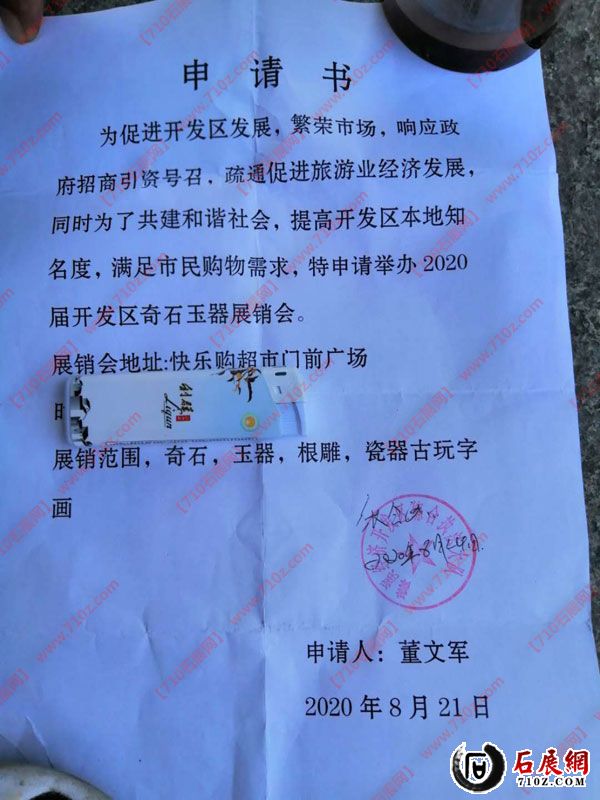 申请书
为促进开发区发展，繁荣市场，响应政
府招商引资号召，疏通促进旅游业经济发展，
同时为了共建和谐社会，提高开发区本地知
名度，满足市民购物需求，特申请举办2020
届开发区奇石玉器展销会。
展销会地址:快乐购超市门前广场
利群
Liqun
展销范围，奇石，玉器，根雕，瓷器古玩字
画
2020年8月24日
申请人：董文军
2020年8月21日
【710石展网】
www.710z.com
石展網
710Z.COM